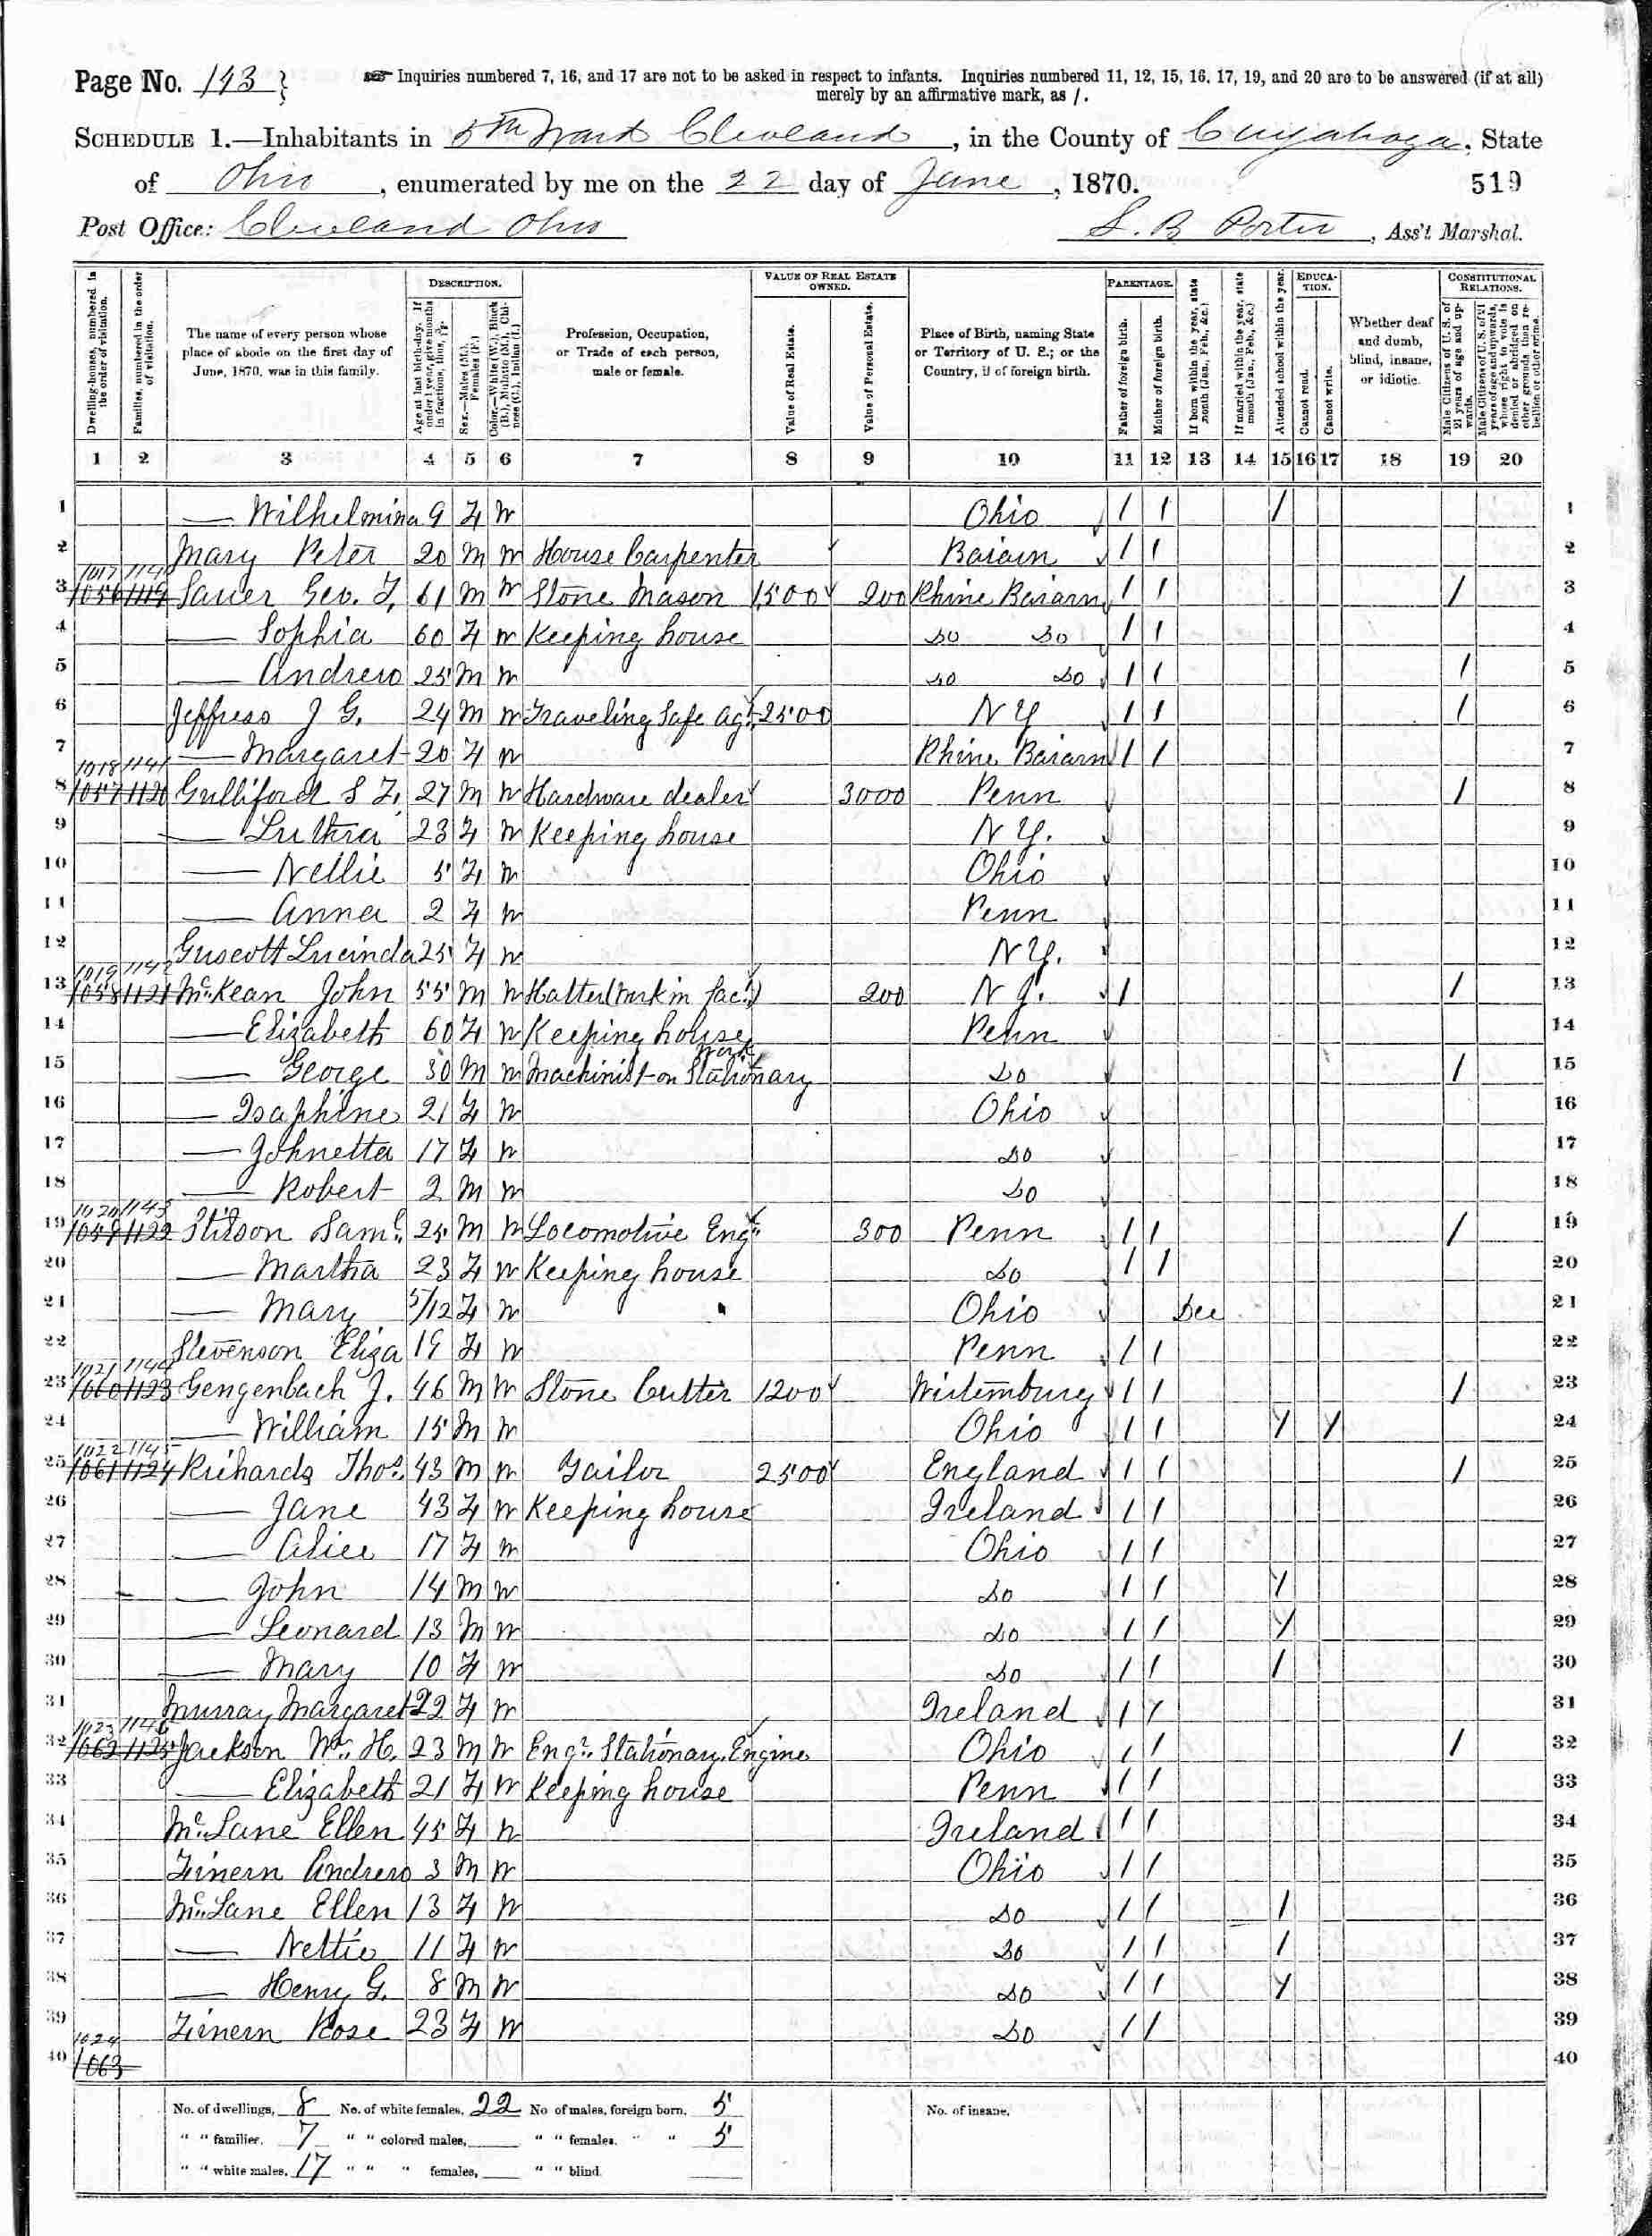 Page No. 143
Inquiries numbered 7, 16, and 17 are not to be asked in respect to infants. Inquiries numbered 11, 12, 15, 16, 17, 19, and 20 are to be answered (if at all)
merely by an affirmative mark, as /.
SCHEDULE 1.—Inhabitants in 5th Ward Cleveland, in the County of Cuyahoga, State
of Ohio, enumerated by me on the 22 day of June, 1870. 519
Post Office: Cleveland Ohio S. B Porter, Ass't Marshal.
DESCRIPTION. VALUE OF REAL ESTATE OWNED. PARENTAGE. EDUCATION. CONSTITUTIONAL RELATIONS.
Dwelling-houses, numbered in the order of visitation.
Families, numbered in the order of visitation.
The name of every person whose place of abode on the first day of June, 1870, was in this family.
Age at last birth-day. If under 1 year, give months in fractions, thus, 3/12.
Sex.—Males (M.), Females (F.)
Color.—White (W.), Black (B.), Mulatto (M.), Chinese (C.), Indian (I.)
Profession, Occupation, or Trade of each person, male or female.
Value of Real Estate.
Value of Personal Estate.
Place of Birth, naming State or Territory of U. S.; or the Country, if of foreign birth.
Father of foreign birth.
Mother of foreign birth.
If born within the year, state month (Jan., Feb., &c.)
If married within the year, state month (Jan., Feb., &c.)
Attended school within the year.
Cannot read.
Cannot write.
Whether deaf and dumb, blind, insane, or idiotic.
Male Citizens of U. S. of 21 years of age and upwards.
Male Citizens of U. S. of 21 years of age and upwards, whose right to vote is denied or abridged on other grounds than rebellion or other crime.
1 2 3 4 5 6 7 8 9 10 11 12 13 14 15 16 17 18 19 20
1 — Wilhelmina 9 F W Ohio / / / 1
2 Mary Peter 20 M W House Carpenter Baiarn / / 2
1017 1140
3 1056 1119 Sauer Geo. F. 61 M W Stone Mason 1500 200 Rhine Baiarn / / / 3
4 — Sophia 60 F W Keeping house Do Do / / 4
5 — Andrew 25 M W Do Do / / / 5
6 Jeffress J G. 24 M W Traveling Safe Agt 2500 N Y / / / 6
7 — Margaret 20 F W Rhine Baiarn / / 7
1018 1141
8 1057 1120 Gulliford S F. 27 M W Hardware dealer 3000 Penn / 8
9 — Luthia 23 F W Keeping house N Y. 9
10 — Nellie 5 F W Ohio 10
11 — Anna 2 F W Penn 11
12 Guscott Lucinda 25 F W N Y. 12
1019 1142
13 1058 1121 McKean John 55 M W Hatter (work in fac.) 200 N J. / / 13
14 — Elizabeth 60 F W Keeping house Penn 14
work
15 — George 30 M W Machinist on Stationary Do / 15
16 — Josaphine 21 F W Ohio 16
17 — Johnetta 17 F W Do 17
18 — Robert 2 M W Do 18
1020 1143
19 1059 1122 Stitson Saml. 25 M W Locomotive Engr 300 Penn / / / 19
20 — Martha 23 F W Keeping house Do / / 20
21 — Mary 5/12 F W Ohio Dec 21
22 Stevenson Eliza 19 F W Penn / / 22
1021 1144
23 1060 1123 Gengenbach J. 46 M W Stone Cutter 1200 Wirtemburg / / / 23
24 — William 15 M W Ohio / / / / 24
1022 1145
25 1061 1124 Richards Thos. 43 M W Tailor 2500 England / / / 25
26 — Jane 43 F W Keeping house Ireland / / 26
27 — Alice 17 F W Ohio / / 27
28 — John 14 M W Do / / / 28
29 — Leonard 13 M W Do / / / 29
30 — Mary 10 F W Do / / / 30
31 Murray Margaret 22 F W Ireland / / 31
1023 1146
32 1062 1125 Jackson Wm. H. 23 M W Engr. Stationary Engine Ohio / / / 32
33 — Elizabeth 21 F W Keeping house Penn / / 33
34 McLane Ellen 45 F W Ireland / / 34
35 Finern Andrew 3 M W Ohio / / 35
36 McLane Ellen 13 F W Do / / / 36
37 — Nettie 11 F W Do / / / 37
38 — Henry G. 8 M W Do / / / 38
39 Finern Rose 23 F W Do / / 39
1024
40 1063 40
No. of dwellings, 8 No. of white females, 22 No of males, foreign born, 5 No. of insane,
" " families, 7 " " colored males, " " females, " " 5
" " white males, 17 " " " females, " " blind